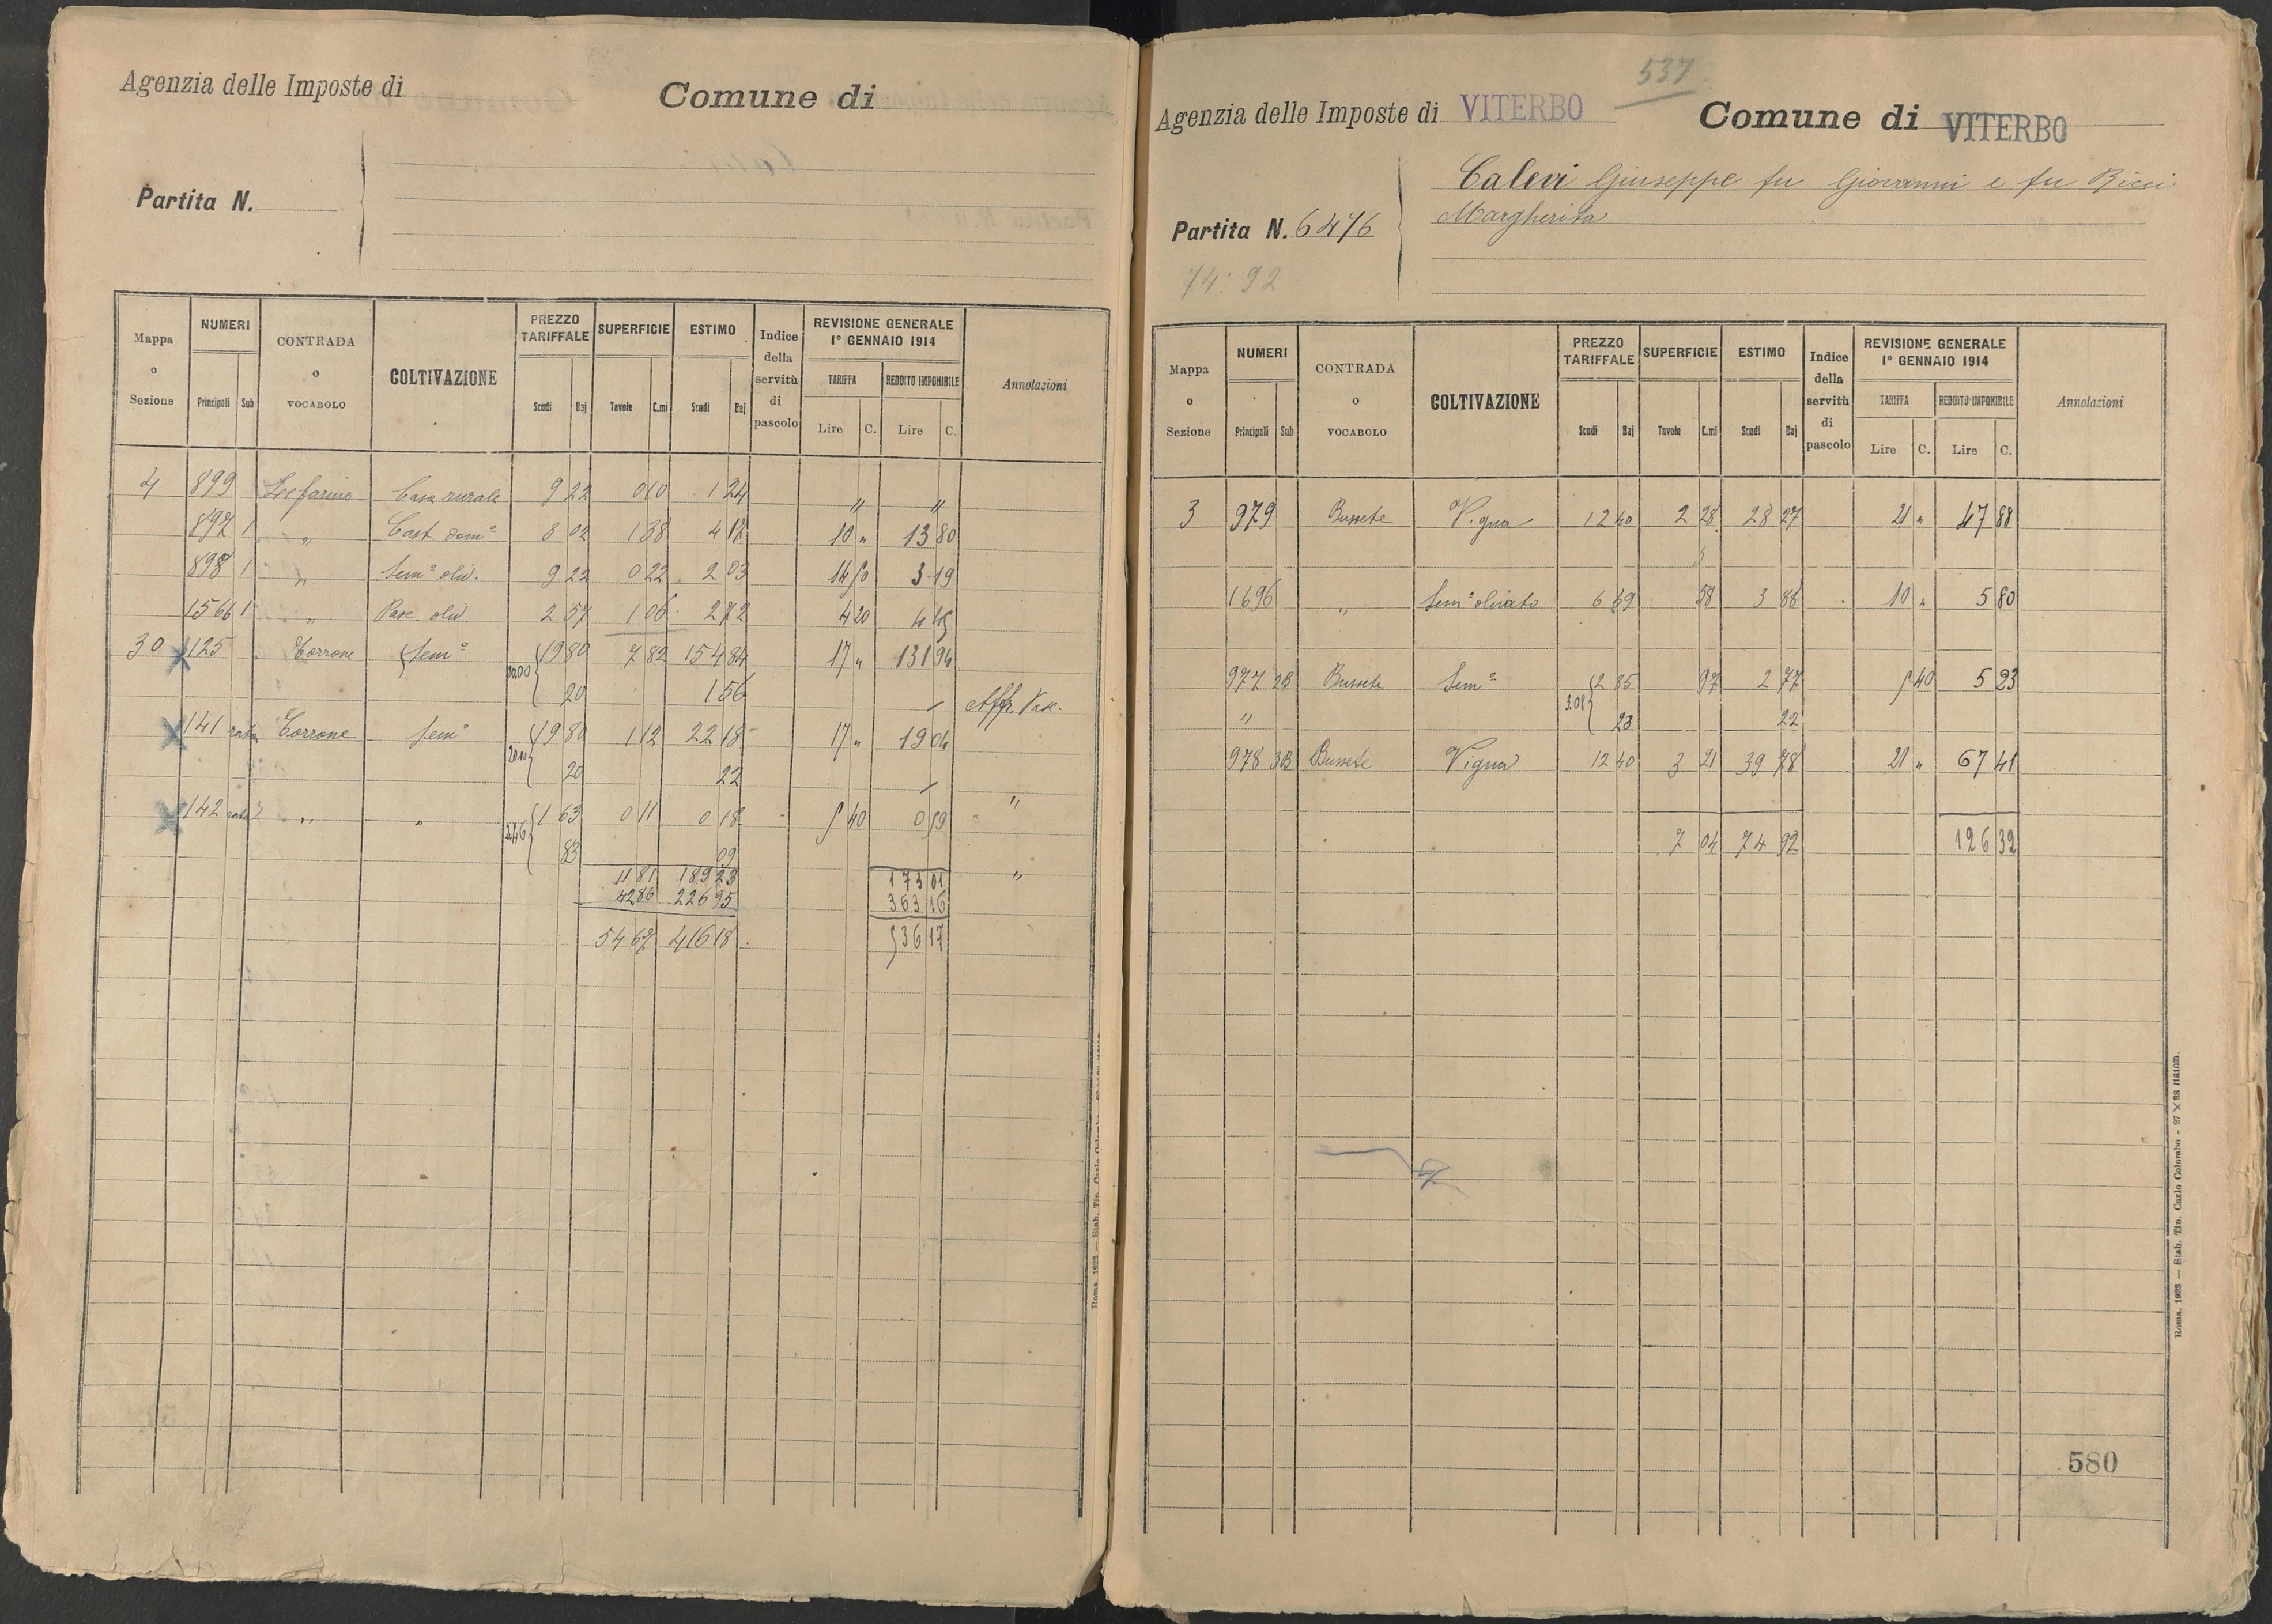 Agenzia delle Imposte di
Comune di
Partita N.
Mappa o Sezione | NUMERI Principali Sub | CONTRADA o VOCABOLO | COLTIVAZIONE | PREZZO TARIFFALE Scudi Baj | SUPERFICIE Tavole C.mi | ESTIMO Scudi Baj | Indice della servitù di pascolo | REVISIONE GENERALE 1° GENNAIO 1914 TARIFFA Lire C. REDDITO IMPONIBILE Lire C. | Annotazioni
4 899 Casa rurale 9 22 0 10 1 24 " "
897 1 " Cast. dom° 3 02 1 38 4 18 10 " 13 80
898 1 " Sem° oliv. 9 22 0 22 2 03 14 50 3 19
1566 1 " Pasc. oliv. 2 57 1 06 2 72 4 20 4 45
30 125 Torrone Sem° 19 80 7 82 154 84 17 " 131 94
20.00 20 1 56 Affr. Pasc.
141 rata Torrone Sem° 19 80 1 12 22 18 17 " 19 04
20.00 20 22
142 rata " " 1 63 0 11 0 18 5 40 0 59 "
2.46 83 09
11 81 189 23 173 01 "
42 86 226 95 363 16
54 67 416 18 536 17
537
Agenzia delle Imposte di VITERBO
Comune di VITERBO
Calevi Giuseppe fu Giovanni e fu Ricci
Margherita
Partita N. 6476
74.92
Mappa o Sezione | NUMERI Principali Sub | CONTRADA o VOCABOLO | COLTIVAZIONE | PREZZO TARIFFALE Scudi Baj | SUPERFICIE Tavole C.mi | ESTIMO Scudi Baj | Indice della servitù di pascolo | REVISIONE GENERALE 1° GENNAIO 1914 TARIFFA Lire C. REDDITO IMPONIBILE Lire C. | Annotazioni
3 979 Bussete Vigna 12 40 2 28 28 27 21 " 47 88
1696 " Sem° olivato 6 69 58 3 88 10 " 5 80
977 2B Bussete Sem° 2 85 97 2 77 5 40 5 23
" 3.08 23 22
978 3B Bussete Vigna 12 40 3 21 39 78 21 " 67 41
7 04 74 92 126 32
580
Roma, 1923 — Stab. Tip. Carlo Colombo